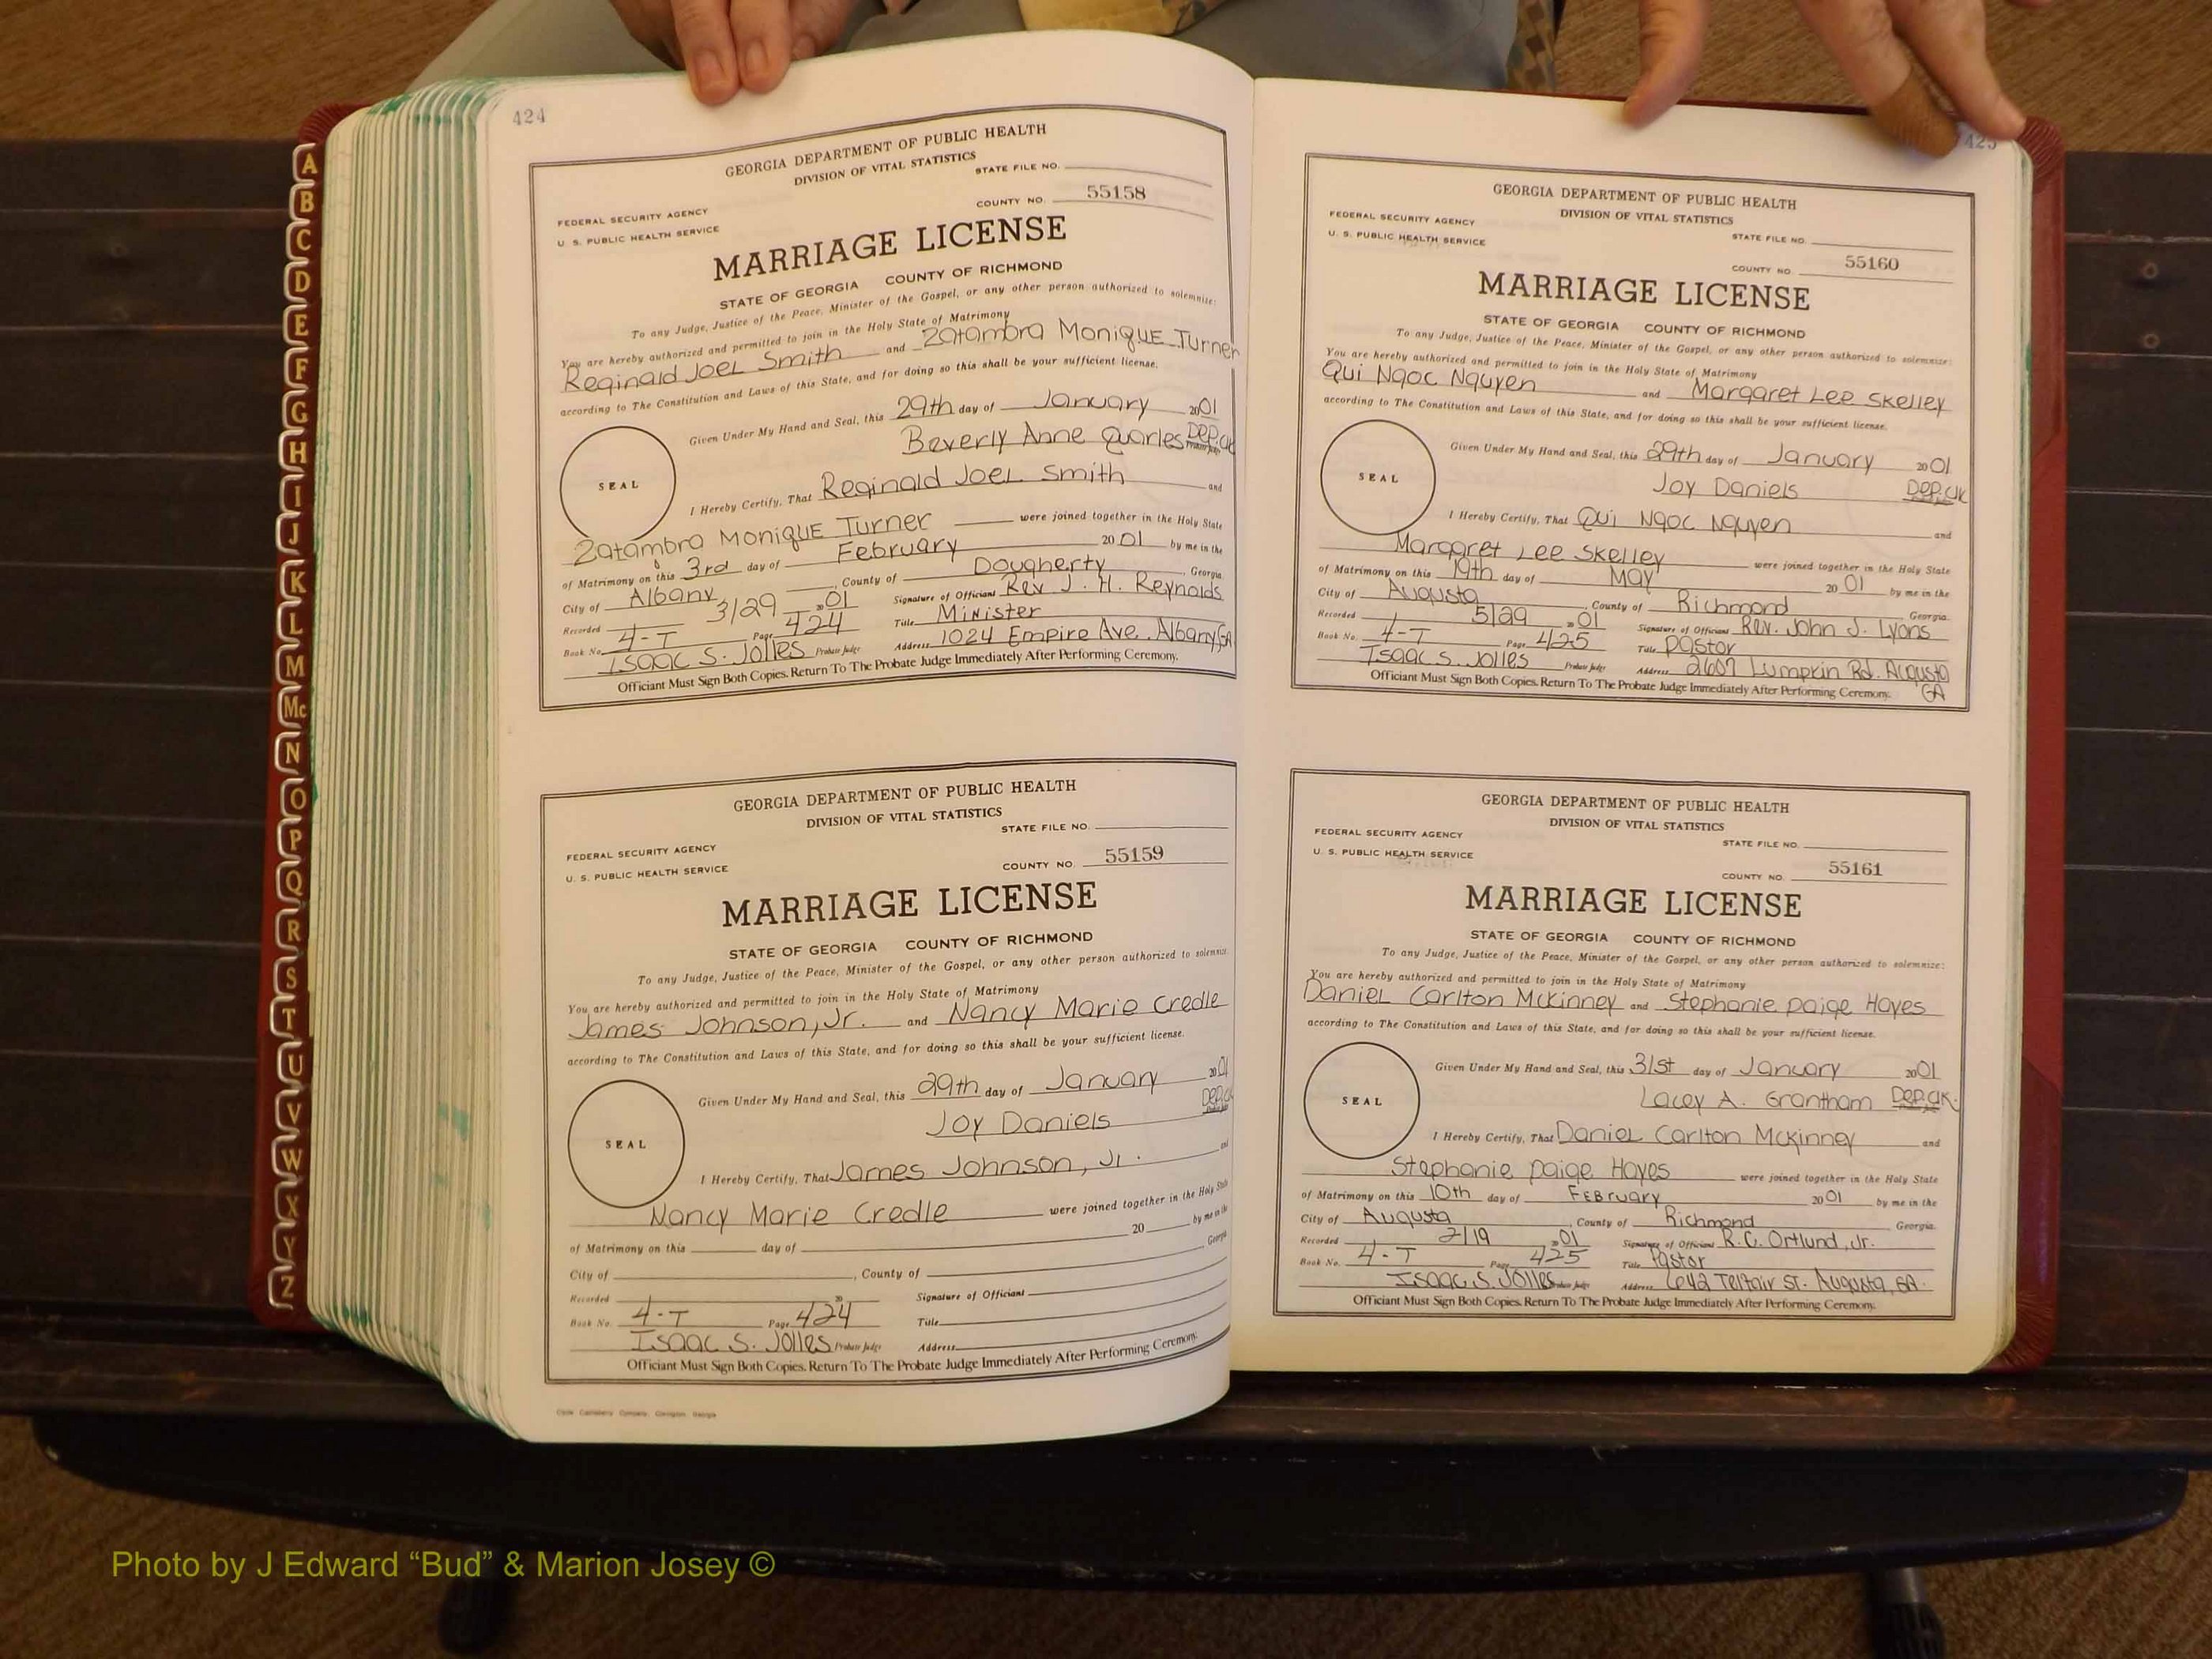 A
B
C
D
E
F
G
H
I
J
K
L
M
Mc
N
O
P
Q
R
S
T
U
V
W
X
Y
Z
424
GEORGIA DEPARTMENT OF PUBLIC HEALTH
DIVISION OF VITAL STATISTICS
STATE FILE NO.
COUNTY NO. 55158
FEDERAL SECURITY AGENCY
U. S. PUBLIC HEALTH SERVICE
MARRIAGE LICENSE
STATE OF GEORGIA COUNTY OF RICHMOND
To any Judge, Justice of the Peace, Minister of the Gospel, or any other person authorized to solemnize:
You are hereby authorized and permitted to join in the Holy State of Matrimony
Reginald Joel Smith and Zatambra Monique Turner
according to The Constitution and Laws of this State, and for doing so this shall be your sufficient license.
Given Under My Hand and Seal, this 29th day of January 2001
Beverly Anne Quarles Dep. Clk
SEAL
I Hereby Certify, That Reginald Joel Smith and
Zatambra Monique Turner were joined together in the Holy State
of Matrimony on this 3rd day of February 2001 by me in the
City of Albany, County of Dougherty, Georgia
Recorded 3/29 2001 Signature of Officiant Rev J. H. Reynolds
Book No. 4-T Page 424 Title Minister
Isaac S. Jolles Probate Judge Address 1024 Empire Ave. Albany, GA
Officiant Must Sign Both Copies. Return To The Probate Judge Immediately After Performing Ceremony.
GEORGIA DEPARTMENT OF PUBLIC HEALTH
DIVISION OF VITAL STATISTICS
STATE FILE NO.
COUNTY NO. 55159
FEDERAL SECURITY AGENCY
U. S. PUBLIC HEALTH SERVICE
MARRIAGE LICENSE
STATE OF GEORGIA COUNTY OF RICHMOND
To any Judge, Justice of the Peace, Minister of the Gospel, or any other person authorized to solemnize
You are hereby authorized and permitted to join in the Holy State of Matrimony
James Johnson, Jr. and Nancy Marie Credle
according to The Constitution and Laws of this State, and for doing so this shall be your sufficient license.
Given Under My Hand and Seal, this 29th day of January 2001
Joy Daniels Dep. Clk
SEAL
I Hereby Certify, That James Johnson, Jr. and
Nancy Marie Credle were joined together in the Holy State
of Matrimony on this day of 20 by me in the
City of , County of Georgia
Recorded 20 Signature of Officiant
Book No. 4-T Page 424 Title
Isaac S. Jolles Probate Judge Address
Officiant Must Sign Both Copies. Return To The Probate Judge Immediately After Performing Ceremony.
425
GEORGIA DEPARTMENT OF PUBLIC HEALTH
DIVISION OF VITAL STATISTICS
STATE FILE NO.
COUNTY NO. 55160
FEDERAL SECURITY AGENCY
U. S. PUBLIC HEALTH SERVICE
MARRIAGE LICENSE
STATE OF GEORGIA COUNTY OF RICHMOND
To any Judge, Justice of the Peace, Minister of the Gospel, or any other person authorized to solemnize:
You are hereby authorized and permitted to join in the Holy State of Matrimony
Qui Ngoc Nguyen and Margaret Lee Skelley
according to The Constitution and Laws of this State, and for doing so this shall be your sufficient license.
Given Under My Hand and Seal, this 29th day of January 2001
Joy Daniels Dep. Clk
SEAL
I Hereby Certify, That Qui Ngoc Nguyen and
Margaret Lee Skelley were joined together in the Holy State
of Matrimony on this 19th day of May 2001 by me in the
City of Augusta, County of Richmond, Georgia.
Recorded 5/29 2001 Signature of Officiant Rev. John J. Lyons
Book No. 4-T Page 425 Title Pastor
Isaac S. Jolles Probate Judge Address 2607 Lumpkin Rd. Augusta
GA
Officiant Must Sign Both Copies. Return To The Probate Judge Immediately After Performing Ceremony.
GEORGIA DEPARTMENT OF PUBLIC HEALTH
DIVISION OF VITAL STATISTICS
STATE FILE NO.
COUNTY NO. 55161
FEDERAL SECURITY AGENCY
U. S. PUBLIC HEALTH SERVICE
MARRIAGE LICENSE
STATE OF GEORGIA COUNTY OF RICHMOND
To any Judge, Justice of the Peace, Minister of the Gospel, or any other person authorized to solemnize:
You are hereby authorized and permitted to join in the Holy State of Matrimony
Daniel Carlton McKinney and Stephanie Paige Hayes
according to The Constitution and Laws of this State, and for doing so this shall be your sufficient license.
Given Under My Hand and Seal, this 31st day of January 2001
Lacey A. Grantham Dep. Clk.
SEAL
I Hereby Certify, That Daniel Carlton McKinney and
Stephanie Paige Hayes were joined together in the Holy State
of Matrimony on this 10th day of February 2001 by me in the
City of Augusta, County of Richmond Georgia.
Recorded 2/19 2001 Signature of Officiant R.C. Ortlund, Jr.
Book No. 4-T Page 425 Title Pastor
Isaac S. Jolles Probate Judge Address 642 Telfair St. Augusta, GA.
Officiant Must Sign Both Copies. Return To The Probate Judge Immediately After Performing Ceremony.
Photo by J Edward “Bud” & Marion Josey ©